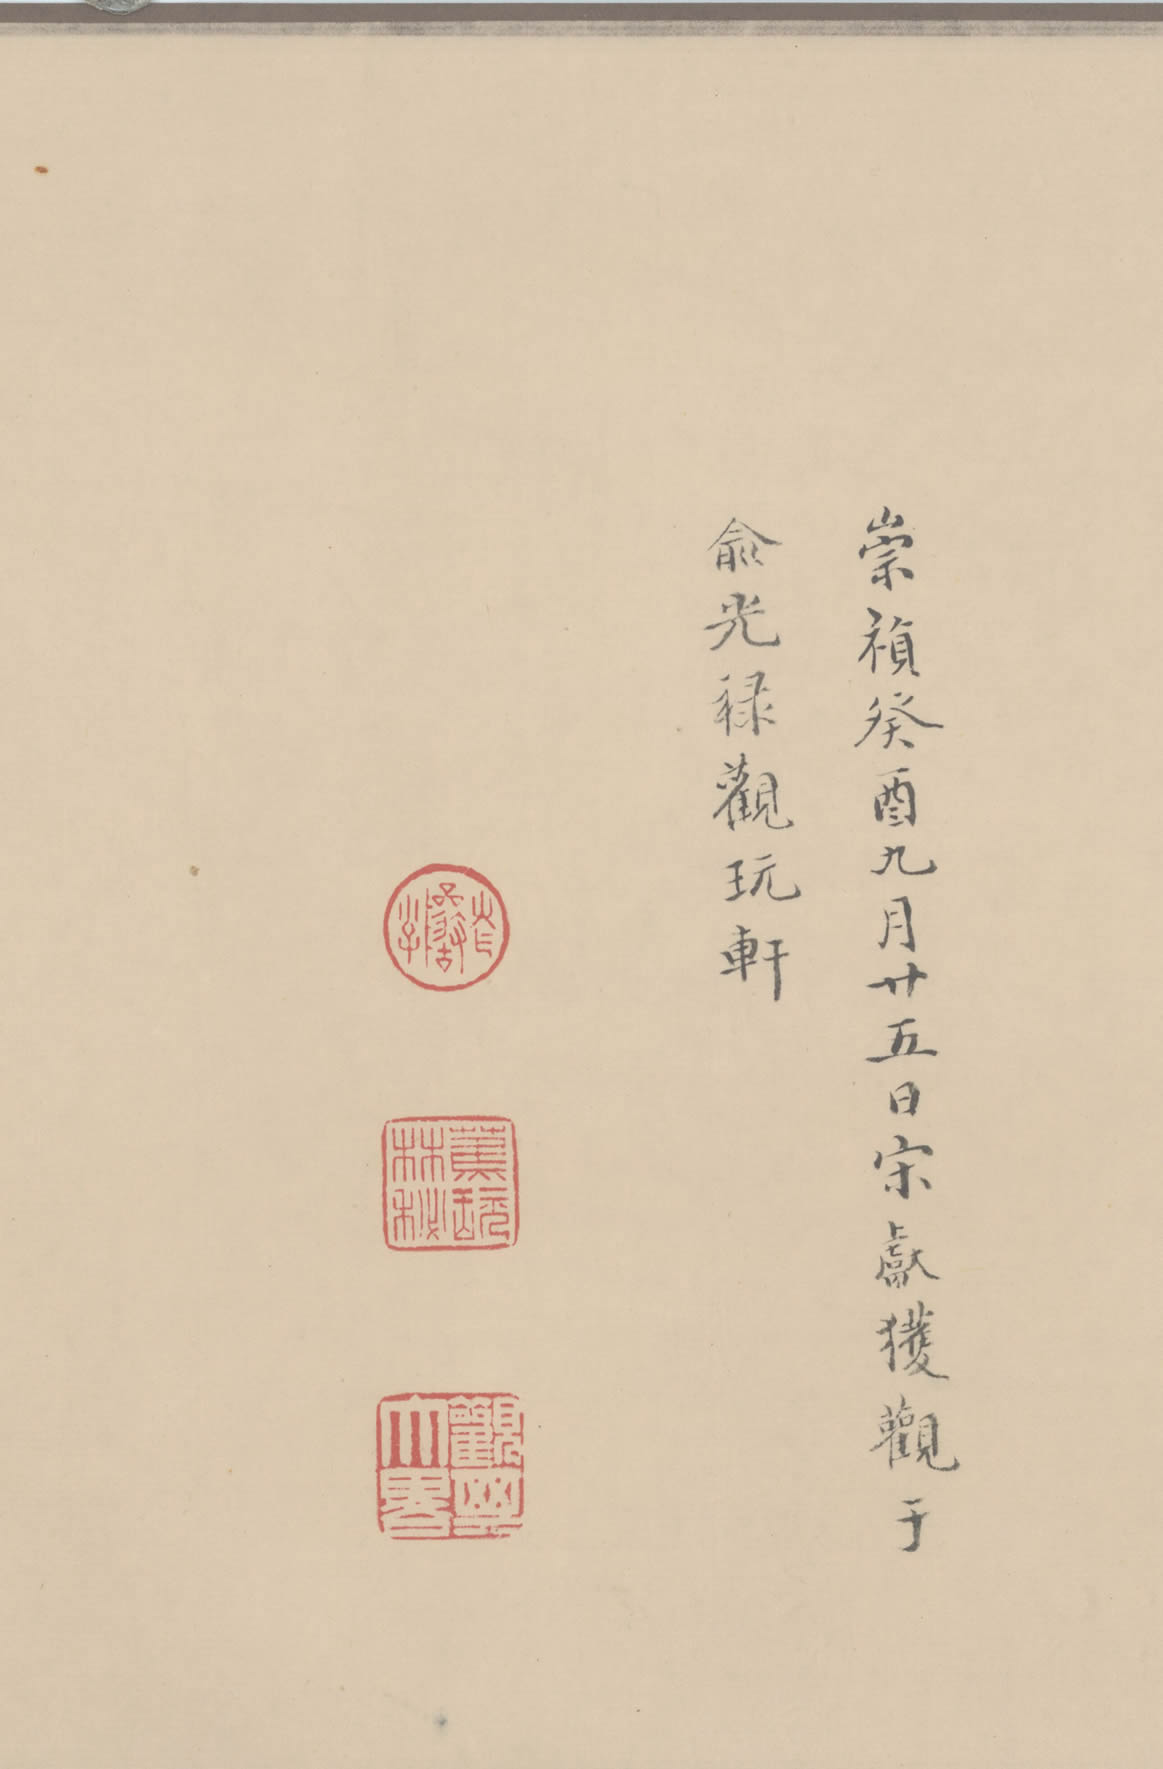 崇禎癸酉九月廿五日宋獻獲觀于
俞光祿觀玩軒
蕉林秘玩
觀其大略